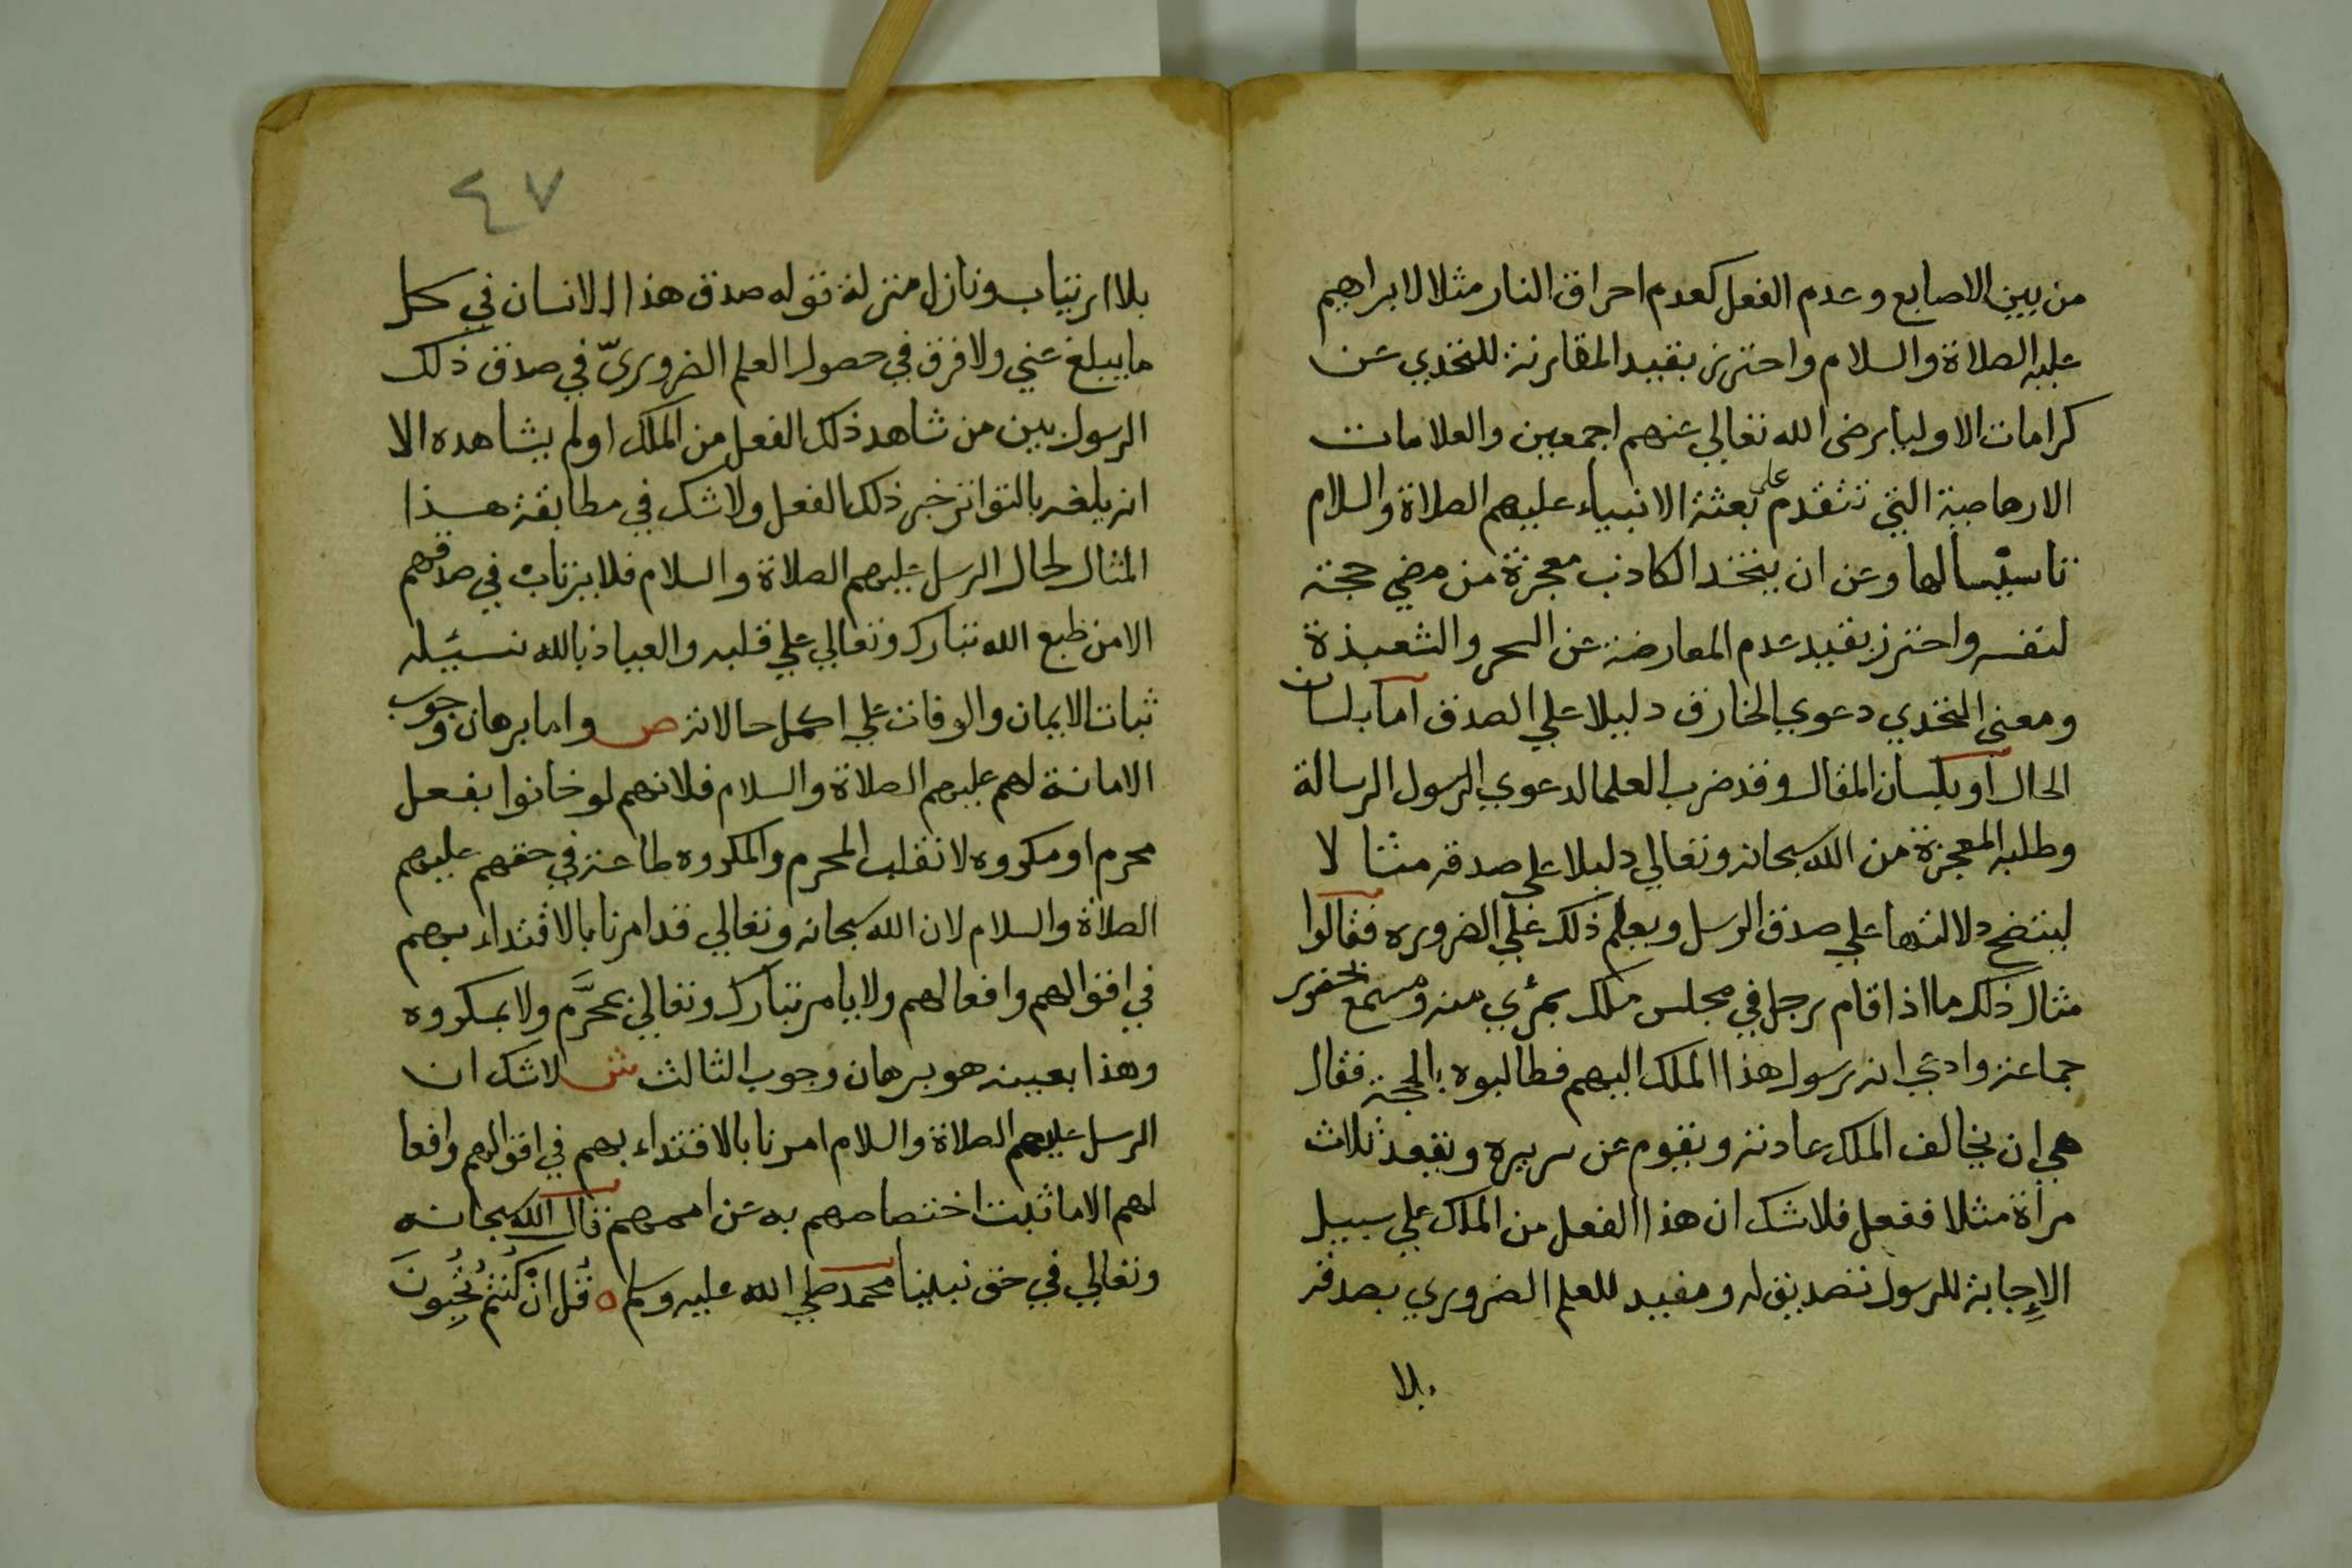 من بين الاصابع وعدم الفعل كعدم احراق النار مثلا لابراهيم
عليه الصلاة والسلام واحترز بقيد المقارنة للتحدي عن
كرامات الاوليا رضى الله تعالي عنهم اجمعين والعلامات
الارهاصية التي تتقدم على بعثة الانبياء عليهم الصلاة والسلام
تاسيسا لها وعن ان يتخذ الكاذب معجزة من مضي حجة
لنفسه واحترز بقيد عدم المعارضة عن السحر والشعبذة
ومعنى التحدي دعوي الخارق دليلا علي الصدق اما بلسان
الحال او بلسان المقال وقد ضرب العلما لدعوي الرسول الرسالة
وطلبه المعجزة من الله سبحانه وتعالي دليلا على صدقه مثالا
ليتضح دلالتها علي صدق الرسل ويعلم ذلك علي الضروره فقالوا
مثال ذلك ما اذا قام رجل في مجلس ملك بمرئي منه ومسمع بحضور
جماعة وادعي انه رسول هذا الملك اليهم فطالبوه بالحجة فقال
هي ان يخالف الملك عادته ويقوم عن سريره ويقعد ثلاث
مراة مثلا ففعل فلاشك ان هذا الفعل من الملك علي سبيل
الإجابة للرسول تصديق له ومفيد للعلم الضروري بصدقه
بلا
٤٧
بلا ارتياب ونازل منزلة قوله صدق هذا الانسان في كل
ما يبلغ عني ولا فرق في حصول العلم الضروريّ في صدق ذلك
الرسول بين من شاهد ذلك الفعل من الملك او لم يشاهده الا
انه بلغه بالتواتر خبر ذلك الفعل ولاشك في مطابقة هذا
المثال لحال الرسل عليهم الصلاة والسلام فلا يرتاب في صدقهم
الا من طبع الله تبارك وتعالي علي قلبه والعياذ بالله نسئله
ثبات الايمان والوفات علي اكمل حالاته ص واما برهان وجوب
الامانة لهم عليهم الصلاة والسلام فلانهم لو خانوا بفعل
محرم او مكروه لانقلب المحرم والمكروه طاعة في حقهم عليهم
الصلاة والسلام لان الله سبحانه وتعالي قد امرنا بالاقتداء بهم
في اقوالهم وافعالهم ولا يامر تبارك وتعالي بمحرَّم ولا بمكروه
وهذا بعينه هو برهان وجوب الثالث ش لاشك ان
الرسل عليهم الصلاة والسلام امرنا بالاقتداء بهم في اقوالهم وافعا
لهم الا ما ثبت اختصاصهم به عن اممهم قال الله سبحانه
وتعالي في حق نبينا محمد صلي الله عليه وسلم ه قُل انْ كُنتُم تُحِبُونَ